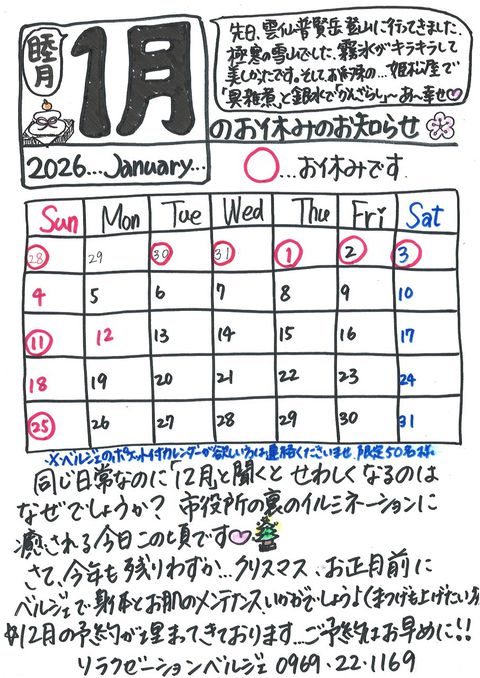 睦月
1月
先日、雲仙普賢岳登山に行ってきました。
極寒の雪山でした。霧氷がキラキラして
美しかったです。そしてお約束の…姫松屋で
「具雑煮」と銀水で「かんざらし」〜あ〜幸せ♡
のお休みのお知らせ
2026...January...
○...お休みです
Sun Mon Tue Wed Thu Fri Sat
28 29 30 31 1 2 3
4 5 6 7 8 9 10
11 12 13 14 15 16 17
18 19 20 21 22 23 24
25 26 27 28 29 30 31
※ベルジェのポケット付カレンダーが欲しい方は連絡くださいませ。限定50名様。
同じ日常なのに「12月」と聞くと せわしくなるのは
なぜでしょうか? 市役所の裏のイルミネーションに
癒される今日この頃です♡
さて、今年も残りわずか...クリスマス、お正月前に
ベルジェで身体とお肌のメンテナンスいかがでしょうか(まつげも上げたい方
12月の予約が埋まってきております...ご予約はお早めに!!
リラクゼーションベルジェ 0969-22-1169